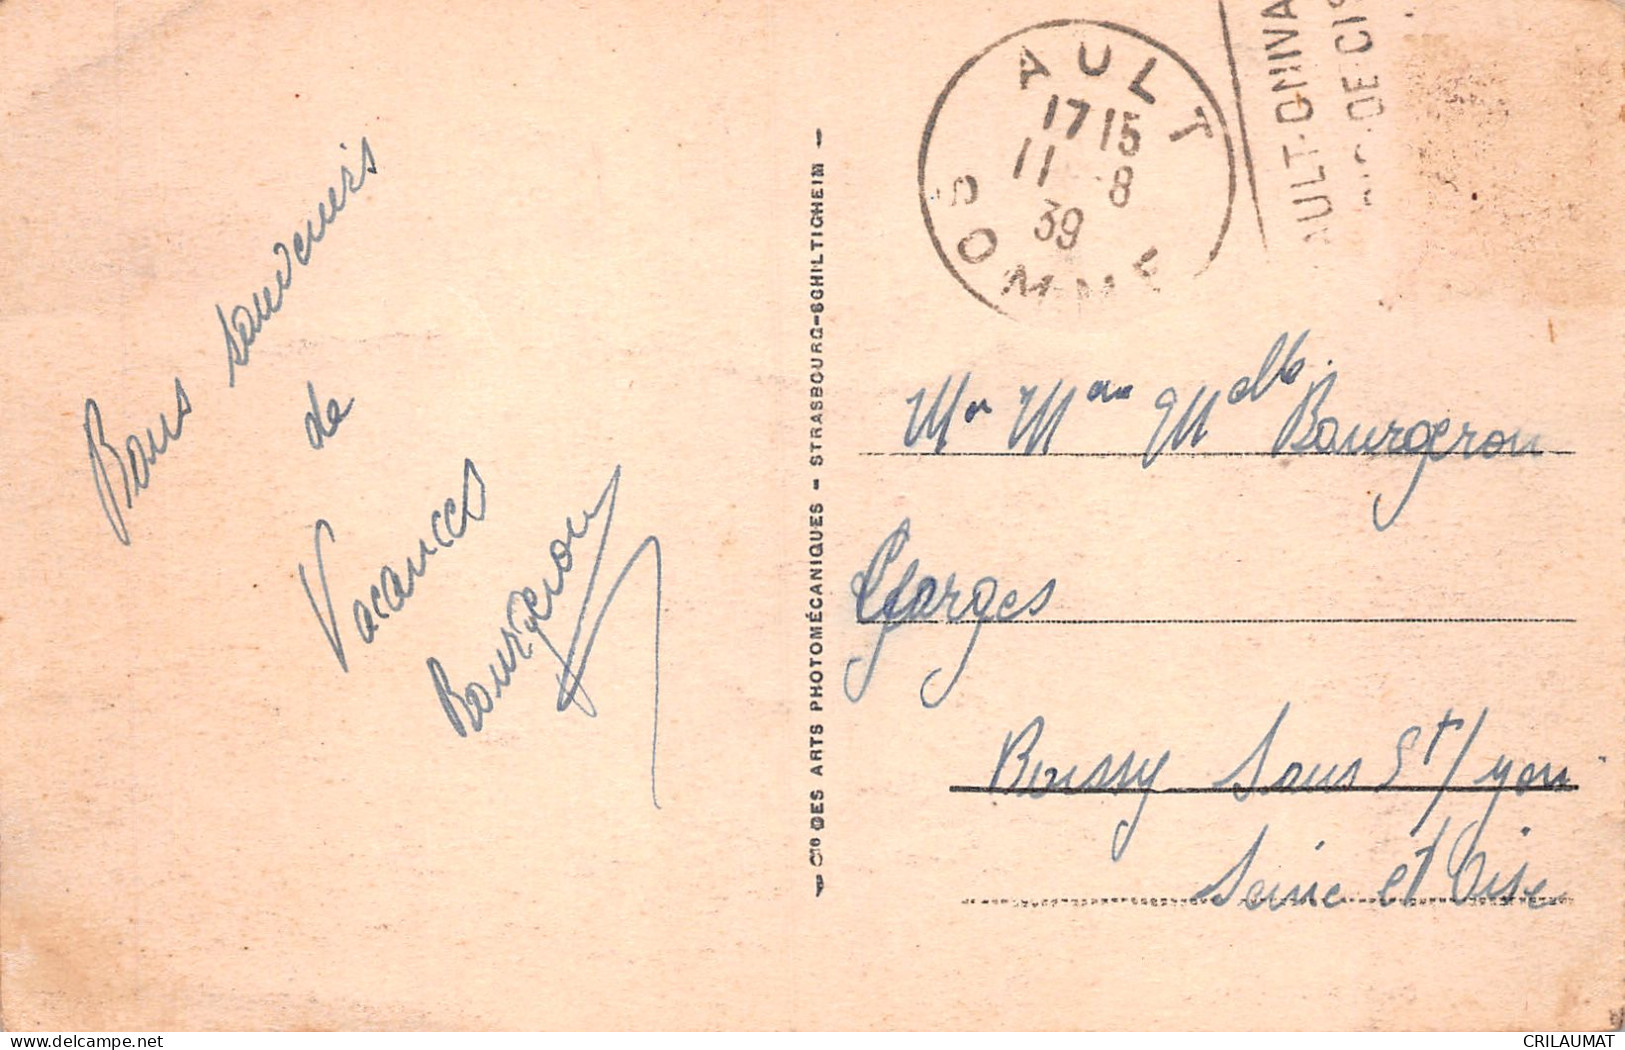 Bons souvenirs
de
Vacances
Bourgeron
— Cie DES ARTS PHOTOMÉCANIQUES - STRASBOURG-SCHILTIGHEIM —
AULT
17 15
11 8
39
SOMME
AULT-ONIVA
DE CI
Mr Mme Melle Bourgeron
Georges
Boissy Sous St/yon
Seine et Oise
CRILAUMAT